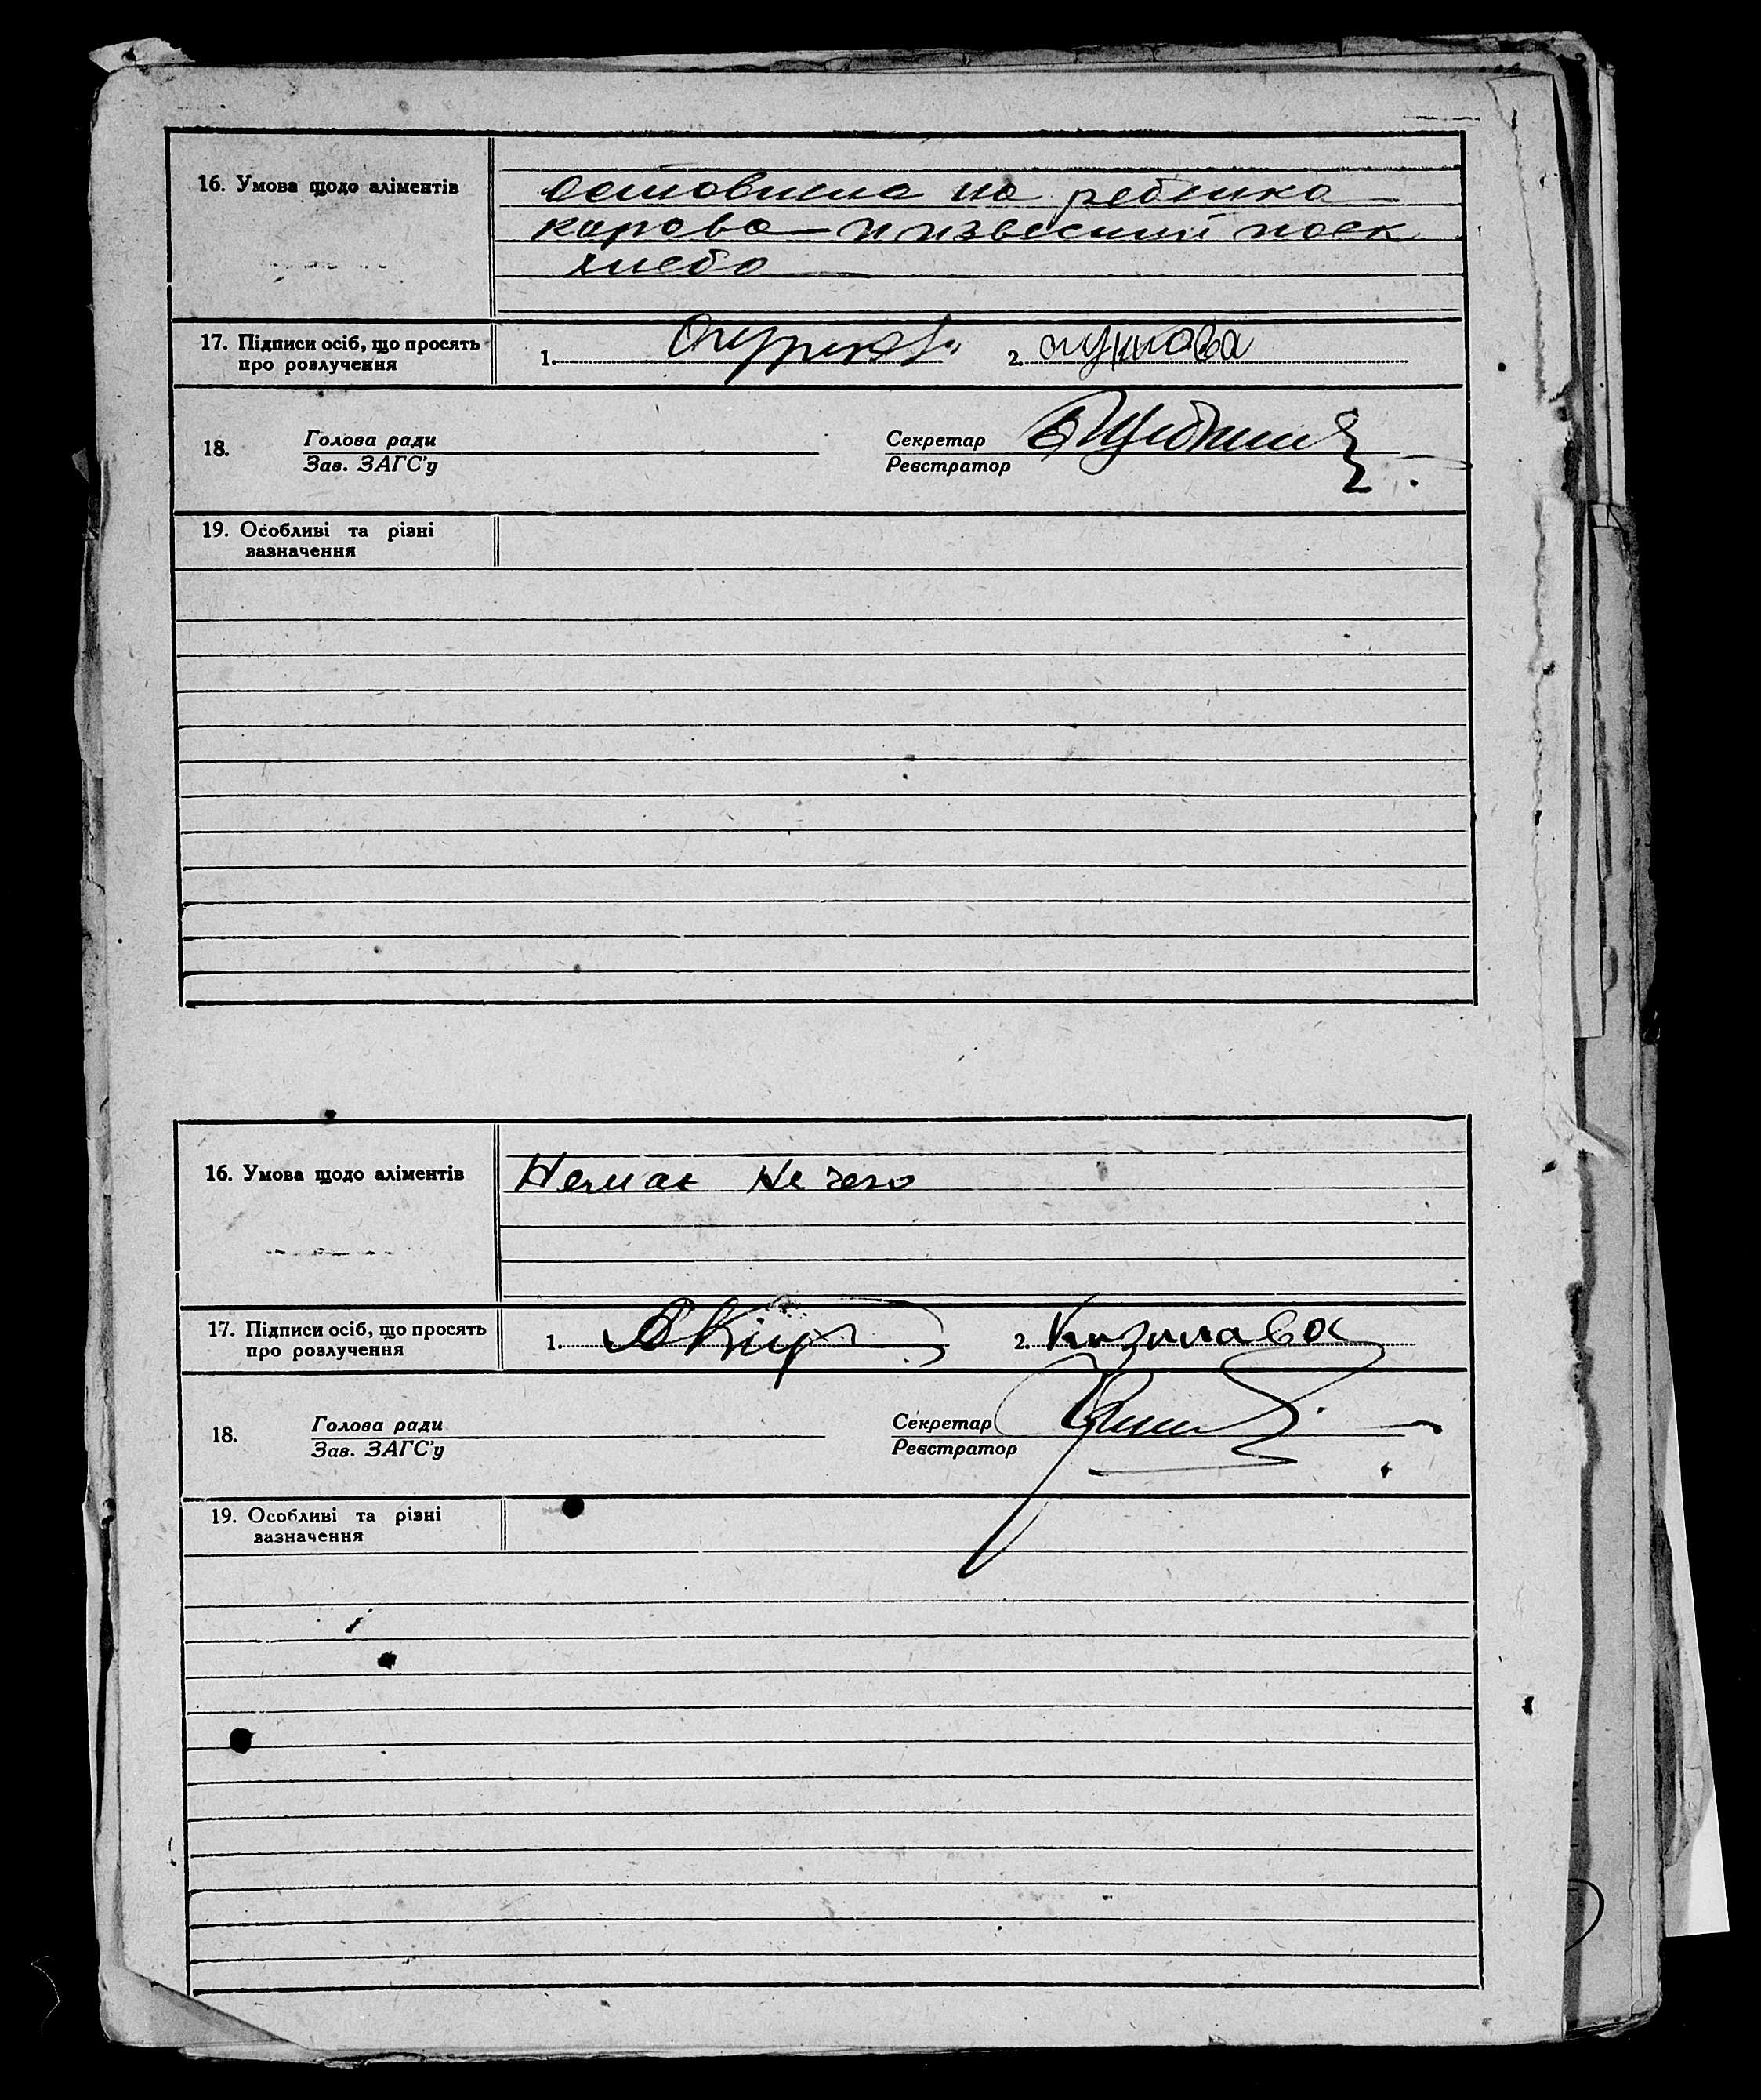 16. Умова щодо аліментів
оставила на ребенка
корова и известний паек
хлеба
17. Підписи осіб, що просять
про розлучення
1. 2.
18. Голова ради
Зав. ЗАГС'у
Секретар
Реєстратор
19. Особливі та різні
зазначення
16. Умова щодо аліментів
Немає нечего
17. Підписи осіб, що просять
про розлучення
1. 2. Козлова
18. Голова ради
Зав. ЗАГС'у
Секретар
Реєстратор
19. Особливі та різні
зазначення